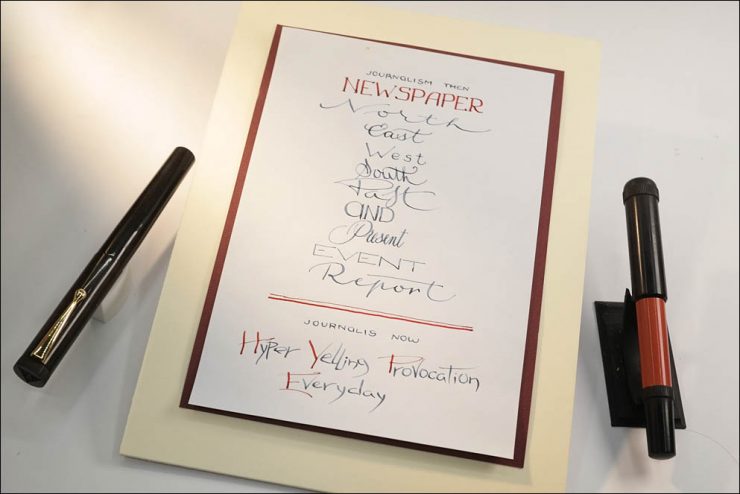 JOURNGLISM THEN
NEWSPAPER
North
East
West
South
Past
AND
Present
EVENT
Report
JOURNGLIS NOW
Hyper Yelling Provocation
Everyday